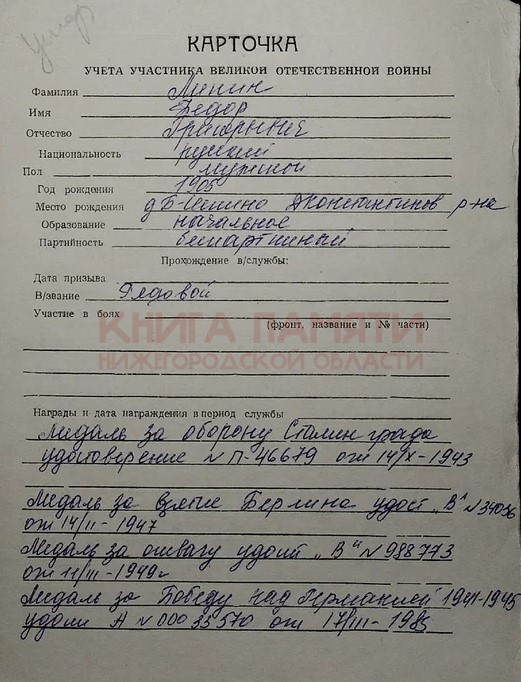 умер
КАРТОЧКА
УЧЕТА УЧАСТНИКА ВЕЛИКОЙ ОТЕЧЕСТВЕННОЙ ВОЙНЫ
Фамилия Линин
Имя Федор
Отчество Григорьевич
Национальность русский
Пол мужской
Год рождения 1905
Место рождения д Б-Цепино Дконстантинов р-на
Образование начальное
Партийность беспартийный
Прохождение в/службы:
Дата призыва
В/звание Рядовой
Участие в боях
(фронт, название и № части)
КНИГА ПАМЯТИ
НИЖЕГОРОДСКОЙ ОБЛАСТИ
Награды и дата награждения в период службы
Медаль за оборону Сталинграда
удостоверение N П-46679 от 14/X-1943
Медаль за взятие Берлина удост „В" N 34036
от 14/II-1947
Медаль за отвагу удост „В" N 988773
от 11/III-1949г
Медаль за Победу над Германией 1941-1945
удост А N 0035570 от 17/III-1985